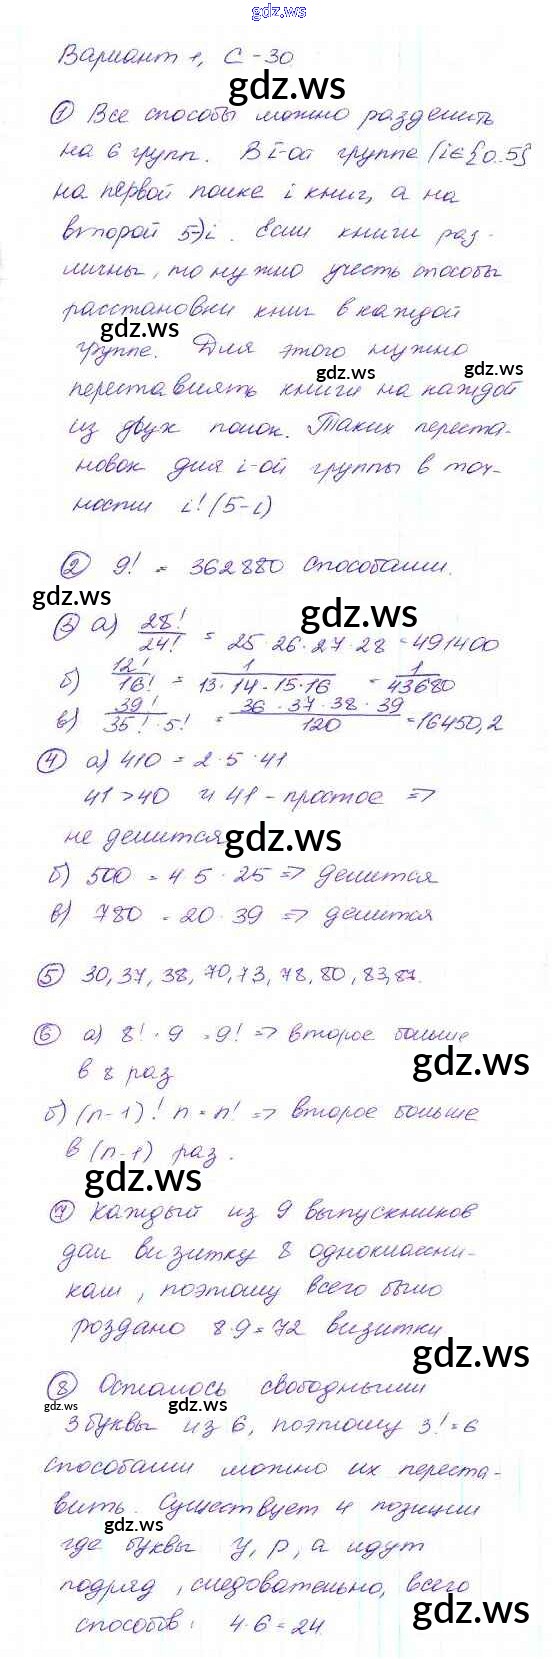 gdz.ws
Вариант 1, С-30
gdz.ws
① Все способы можно разделить
на 6 групп. В i-ой группе (i∈{0..5}
на первой полке i книг, а на
второй 5-)i. Если книги раз-
личны, то нужно учесть способы
расстановки книг в каждой
gdz.ws
группе. Для этого нужно
gdz.ws gdz.ws
переставлять книги на каждой
из двух полок. Таких переста-
новок для i-ой группы в точ-
ности i!(5-i)
② 9! = 362880 способами.
gdz.ws gdz.ws
③ а) 28!/24! = 25·26·27·28 = 491400
б) 12!/16! = 1/13·14·15·16 = 1/43680
в) 39!/35!·5! = 36·37·38·39/120 = 16450,2
④ а) 410 = 2·5·41
41>40 и 41 - простое =>
не делится
gdz.ws
б) 500 = 4·5·25 => делится
в) 780 = 20·39 => делится
⑤ 30, 37, 38, 70, 73, 78, 80, 83, 87.
⑥ а) 8!·9 = 9! => второе больше
gdz.ws
в 8 раз
б) (n-1)! n = n! => второе больше
в (n-1) раз.
gdz.ws
⑦ Каждый из 9 выпускников
дал визитку 8 одноклассни-
кам, поэтому всего было
роздано 8·9=72 визитки
gdz.ws
⑧ Осталось свободными
gdz.ws gdz.ws
3 буквы из 6, поэтому 3!=6
способами можно их переста-
вить. Существует 4 позиции
gdz.ws
где буквы у, р, а идут
подряд, следовательно, всего
gdz.ws
способов: 4·6=24.
gdz.ws